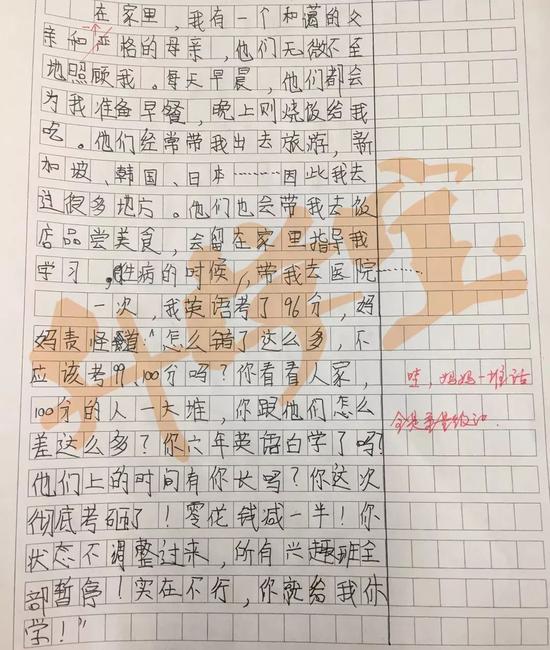 在家里，我有一个和蔼的父
亲和严格的母亲，他们无微不至
地照顾我。每天早晨，他们都会
为我准备早餐，晚上则烧饭给我
吃。他们经常带我出去旅游，新
加坡、韩国、日本………因此我去
过很多地方。他们也会带我去饭
店品尝美食，会留在家里指导我
学习，生病的时候，带我去医院………
一次，我英语考了96分，妈
妈责怪道："怎么错了这么多，不
应该考99、100分吗？你看看人家，
100分的人一大堆，你跟他们怎么
差这么多？你六年英语白学了吗？
他们上的时间有你长吗？你这次
彻底考砸了！零花钱减一半！你
状态不调整过来，所有兴趣班全
部暂停！实在不行，你就给我休
学！"
哇，妈妈一堆话
全是重量级
升学宝